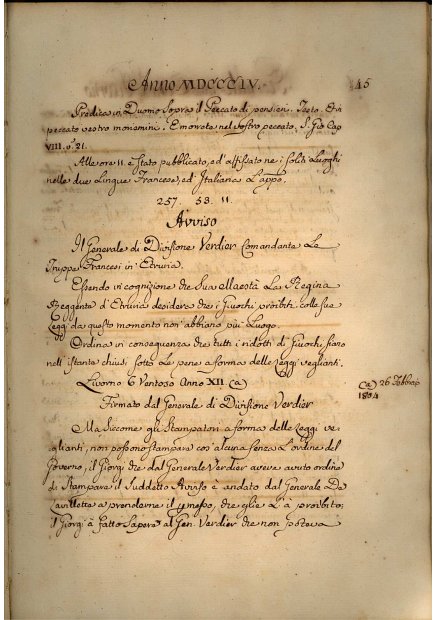 Anno MDCCCIV.
45
Predica in Duomo Sopra il Peccato di pensieri. Testo. In
peccato vestro moriemini. E morrete nel vostro peccato. S. Gio Cap
VIII. v. 21.
Alle ore 11. è stato pubblicato, ed affissato ne i soliti Luoghi
nelle due Lingue Francese, ed Italiana L'appo.
257. 53. 11.
Avviso
Il Generale di Divisione Verdier Comandante Le
Truppe Francesi in Etruria.
Essendo in cognizione che Sua Maestà La Regina
Reggente d'Etruria desidera che i Giuochi proibiti colle sue
Leggi da questo momento non abbiano più Luogo.
Ordina in conseguenza che tutti i ridotti di Giuochi siano
nell'istante chiusi sotto Le pene a forma delle Leggi veglianti.
Livorno 6 Ventoso Anno XII (a)
(a) 26 Febbraio
1804
Firmato dal Generale di Divisione Verdier
Ma siccome gli Stampatori a forma delle Leggi ve-
glianti, non possono stampare cos'alcuna senza L'ordine del
Governo, il Giorgi che dal Generale Verdier aveva avuto ordine
di Stampare il Suddetto Avviso è andato dal Generale De
Lavillette a prenderne il permesso, che egli L'à proibito;
il Giorgi à fatto sapere al Gen. Verdier che non poteva